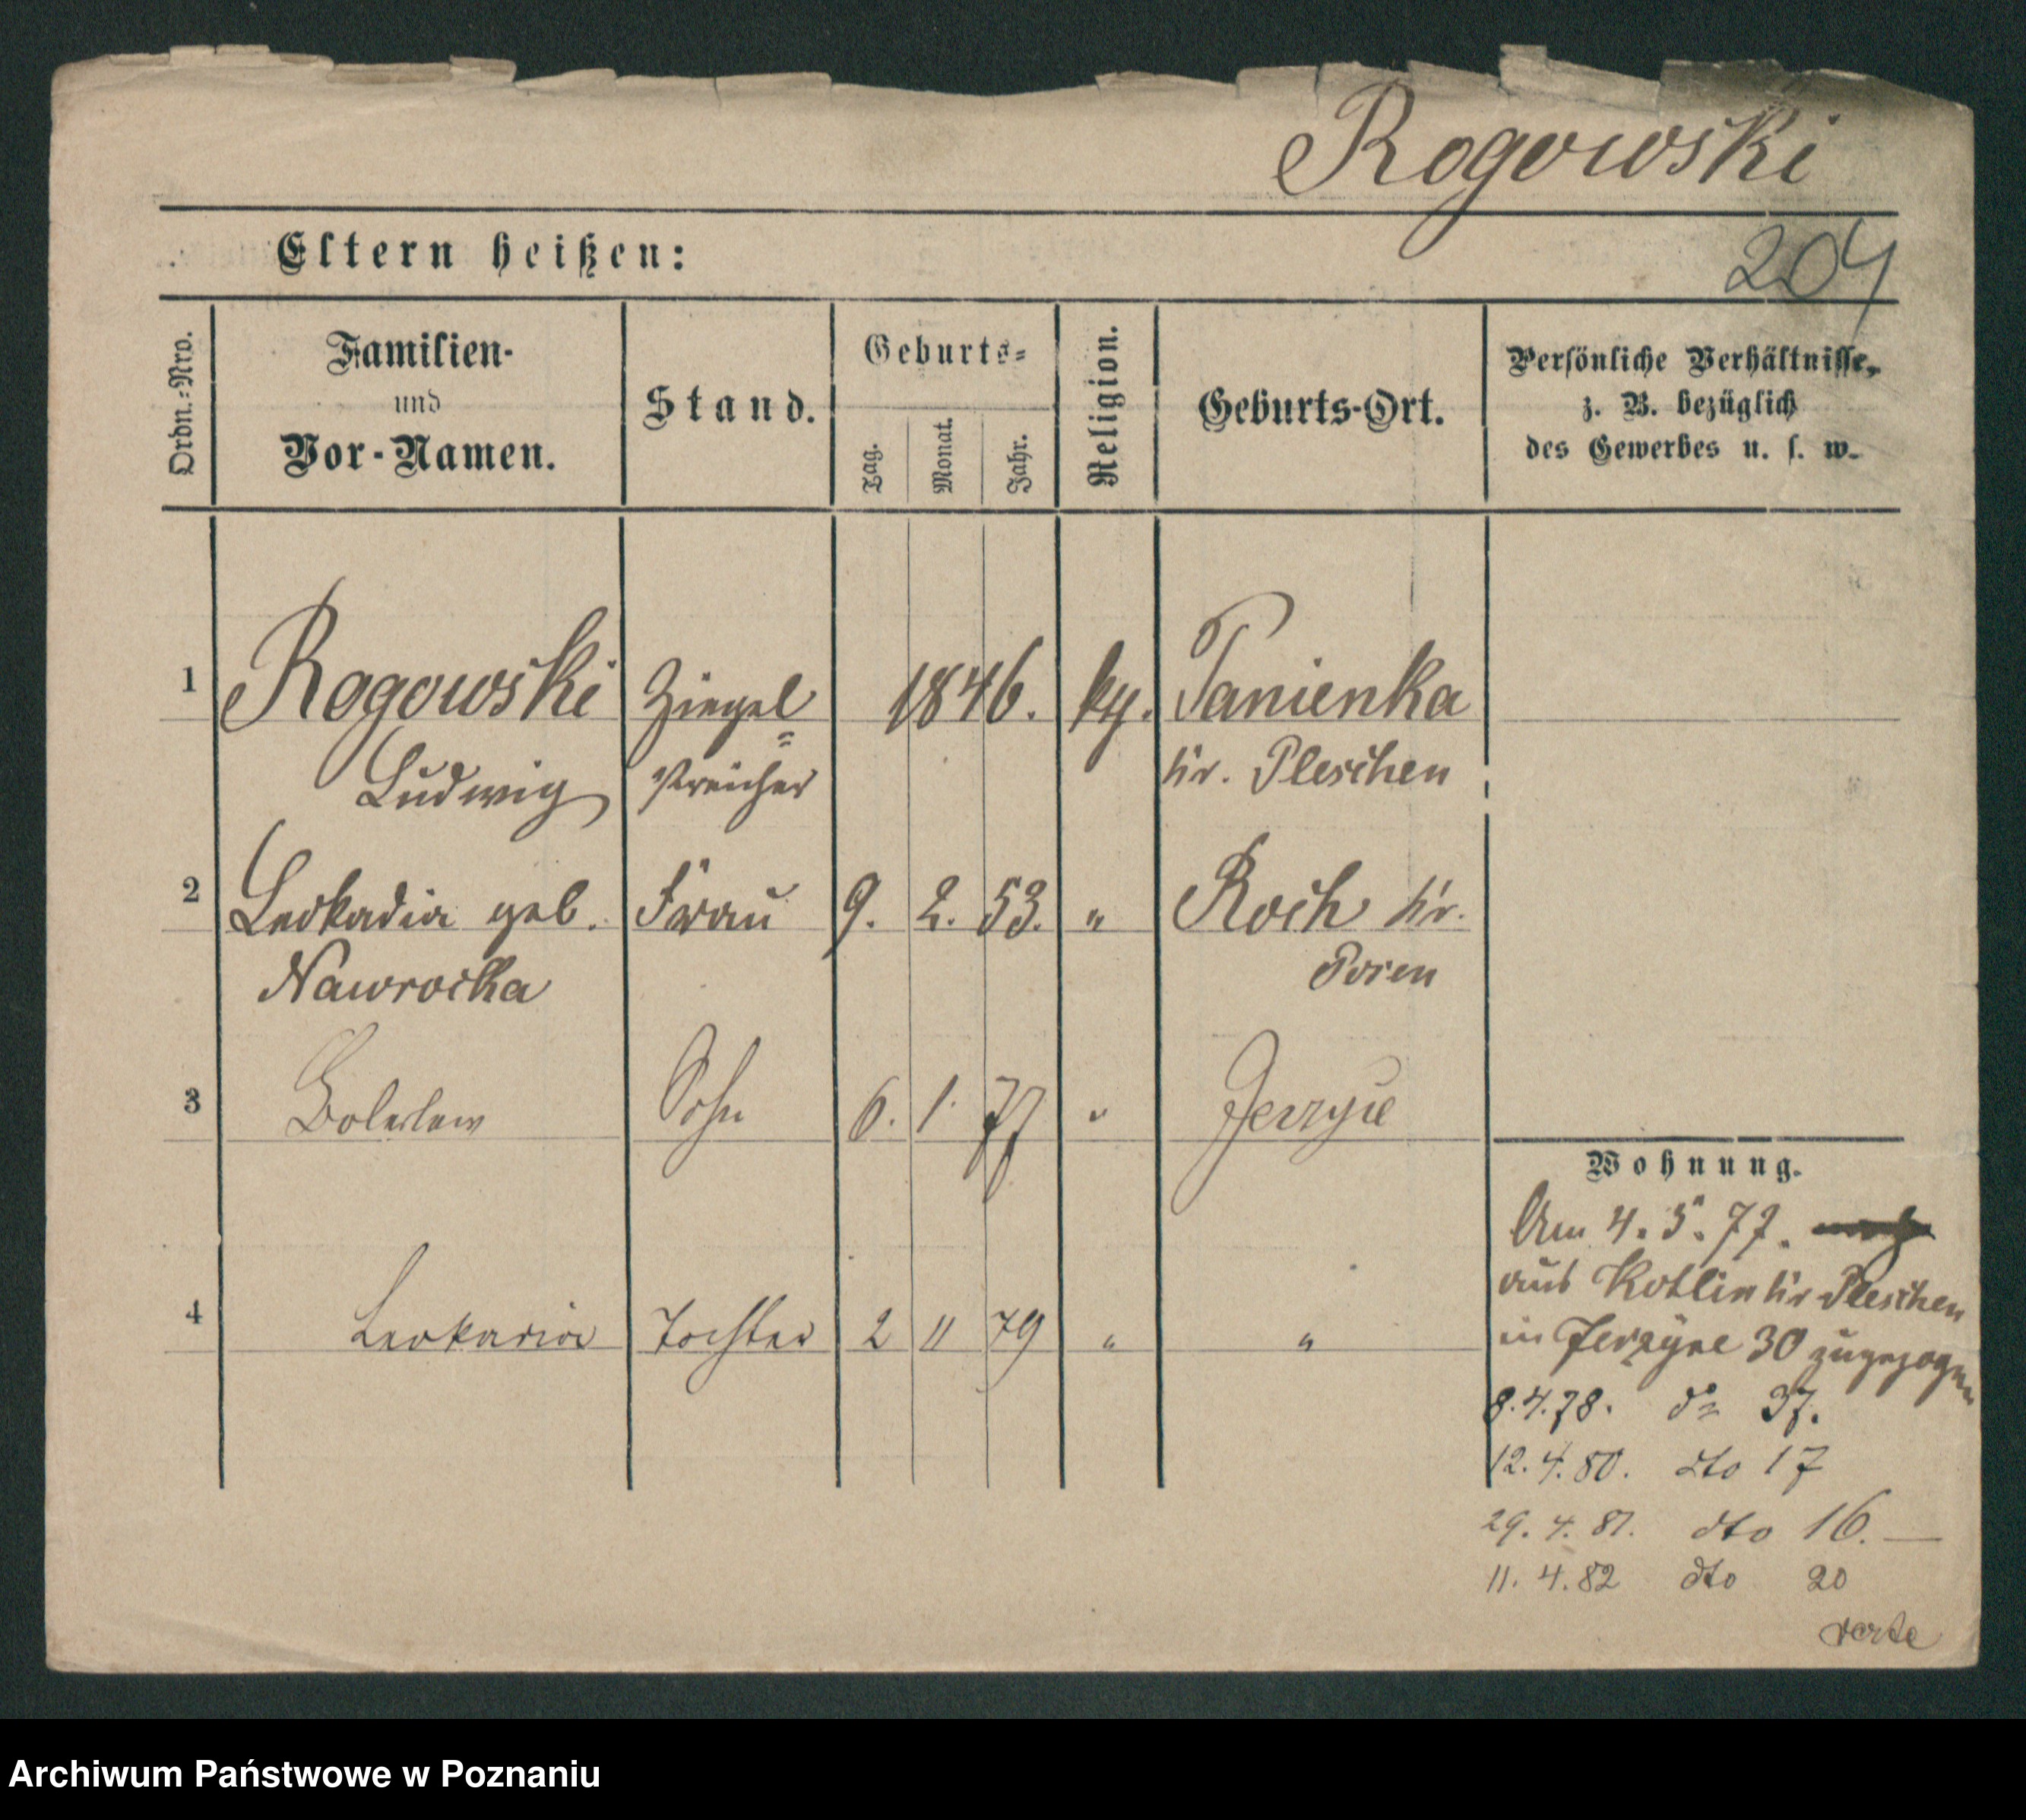 Rogowski
204
Eltern heißen:
Ordn.-Nro.
Familien-
und
Vor-Namen.
Stand.
Geburts-
Tag.
Monat.
Jahr.
Religion.
Geburts-Ort.
Persönliche Verhältnisse,
z. B. bezüglich
des Gewerbes u. s. w.
1 Rogowski Ziegel= 1846. Tanienka
Ludwig streicher Kr. Pleschen
2 Leokadia geb. Frau 9. 2. 53. " Roch Kr.
Nawrocka Posen
3 Boleslaw Sohn 6. 1. 77 " Jerzyce
4 Leokadia Tochter 2 11 79 " "
Wohnung.
Am 4. 5. 77.
aus Kotlin Kr Pleschen
in Jerzyce 30 zugezogen
8.4.78. do 37.
12.4.80. dto 17
29.4.81. dto 16.—
11.4.82 dto 20
verte
Archiwum Państwowe w Poznaniu